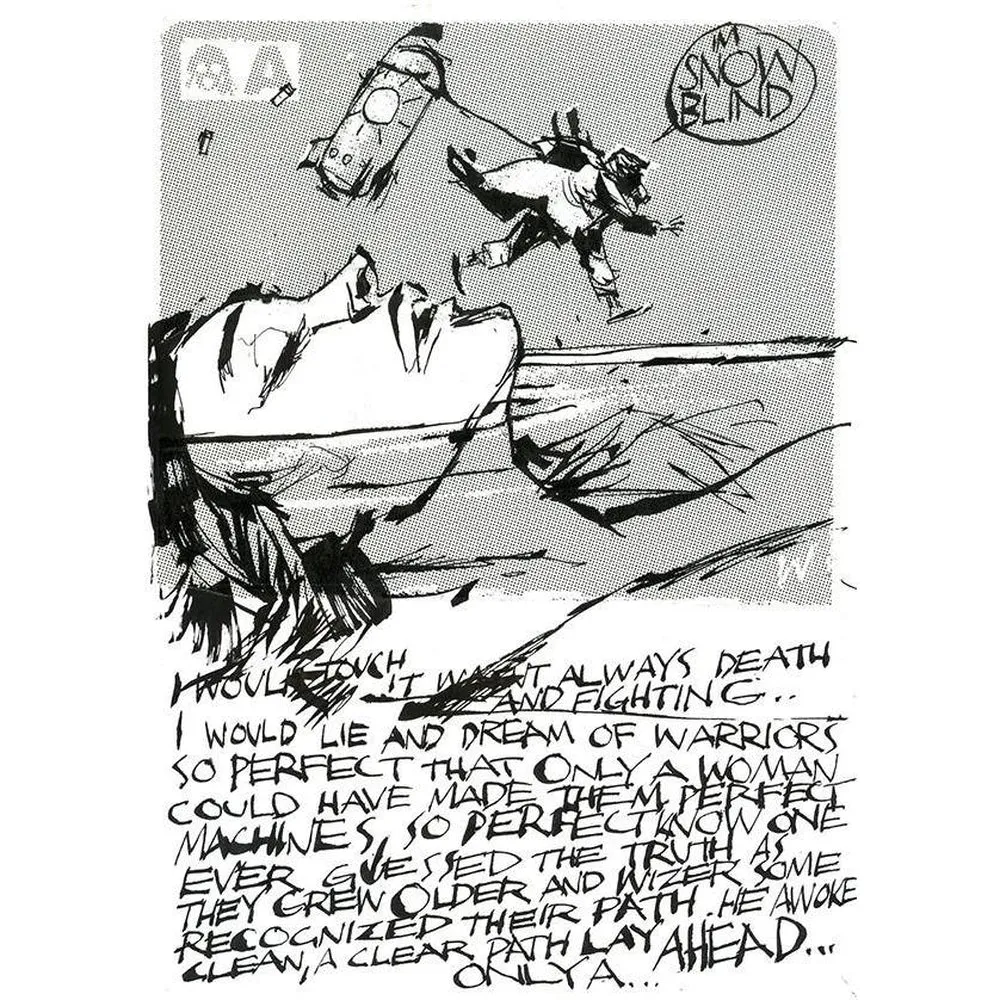 IM
SNOW
BLIND
W
I WOULD TOUCH
IT WASN'T ALWAYS DEATH
AND FIGHTING..
I WOULD LIE AND DREAM OF WARRIORS
SO PERFECT THAT ONLY A WOMAN
COULD HAVE MADE THEM PERFECT
MACHINES, SO PERFECT KNOW ONE
EVER GUESSED THE TRUTH AS
THEY GREW OLDER AND WIZER SOME
RECOGNIZED THEIR PATH. HE AWOKE
CLEAN, A CLEAR PATH LAY AHEAD...
ONLY A...